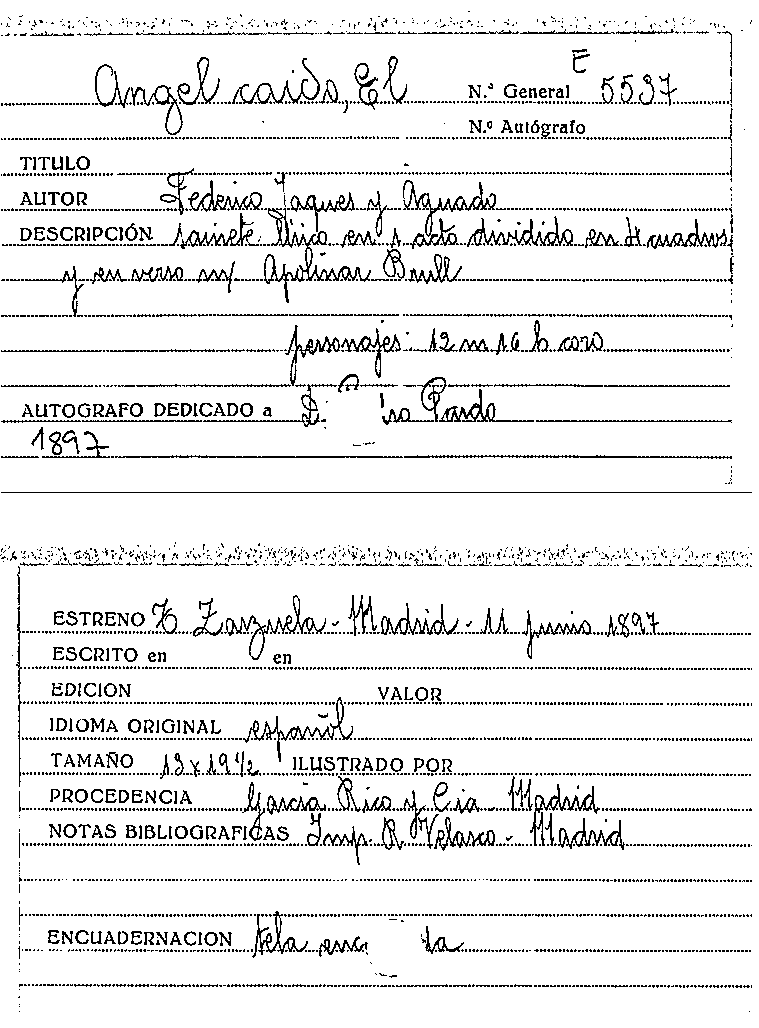 Angel caido, El N.º General E 5537
N.º Autógrafo
TITULO
AUTOR Federico Jaques y Aguado
DESCRIPCIÓN sainete lírico en 1 acto dividido en 4 cuadros
y en verso m/ Apolinar Brull
personajes: 12 m 16 h coro
AUTOGRAFO DEDICADO a D. Pardo
1897
ESTRENO T. Zarzuela - Madrid - 11 junio 1897
ESCRITO en en
EDICION VALOR
IDIOMA ORIGINAL español
TAMAÑO 13 x 19 1/2 ILUSTRADO POR
PROCEDENCIA García Rico y Cia - Madrid
NOTAS BIBLIOGRAFICAS Imp. R. Velasco - Madrid
ENCUADERNACION tela